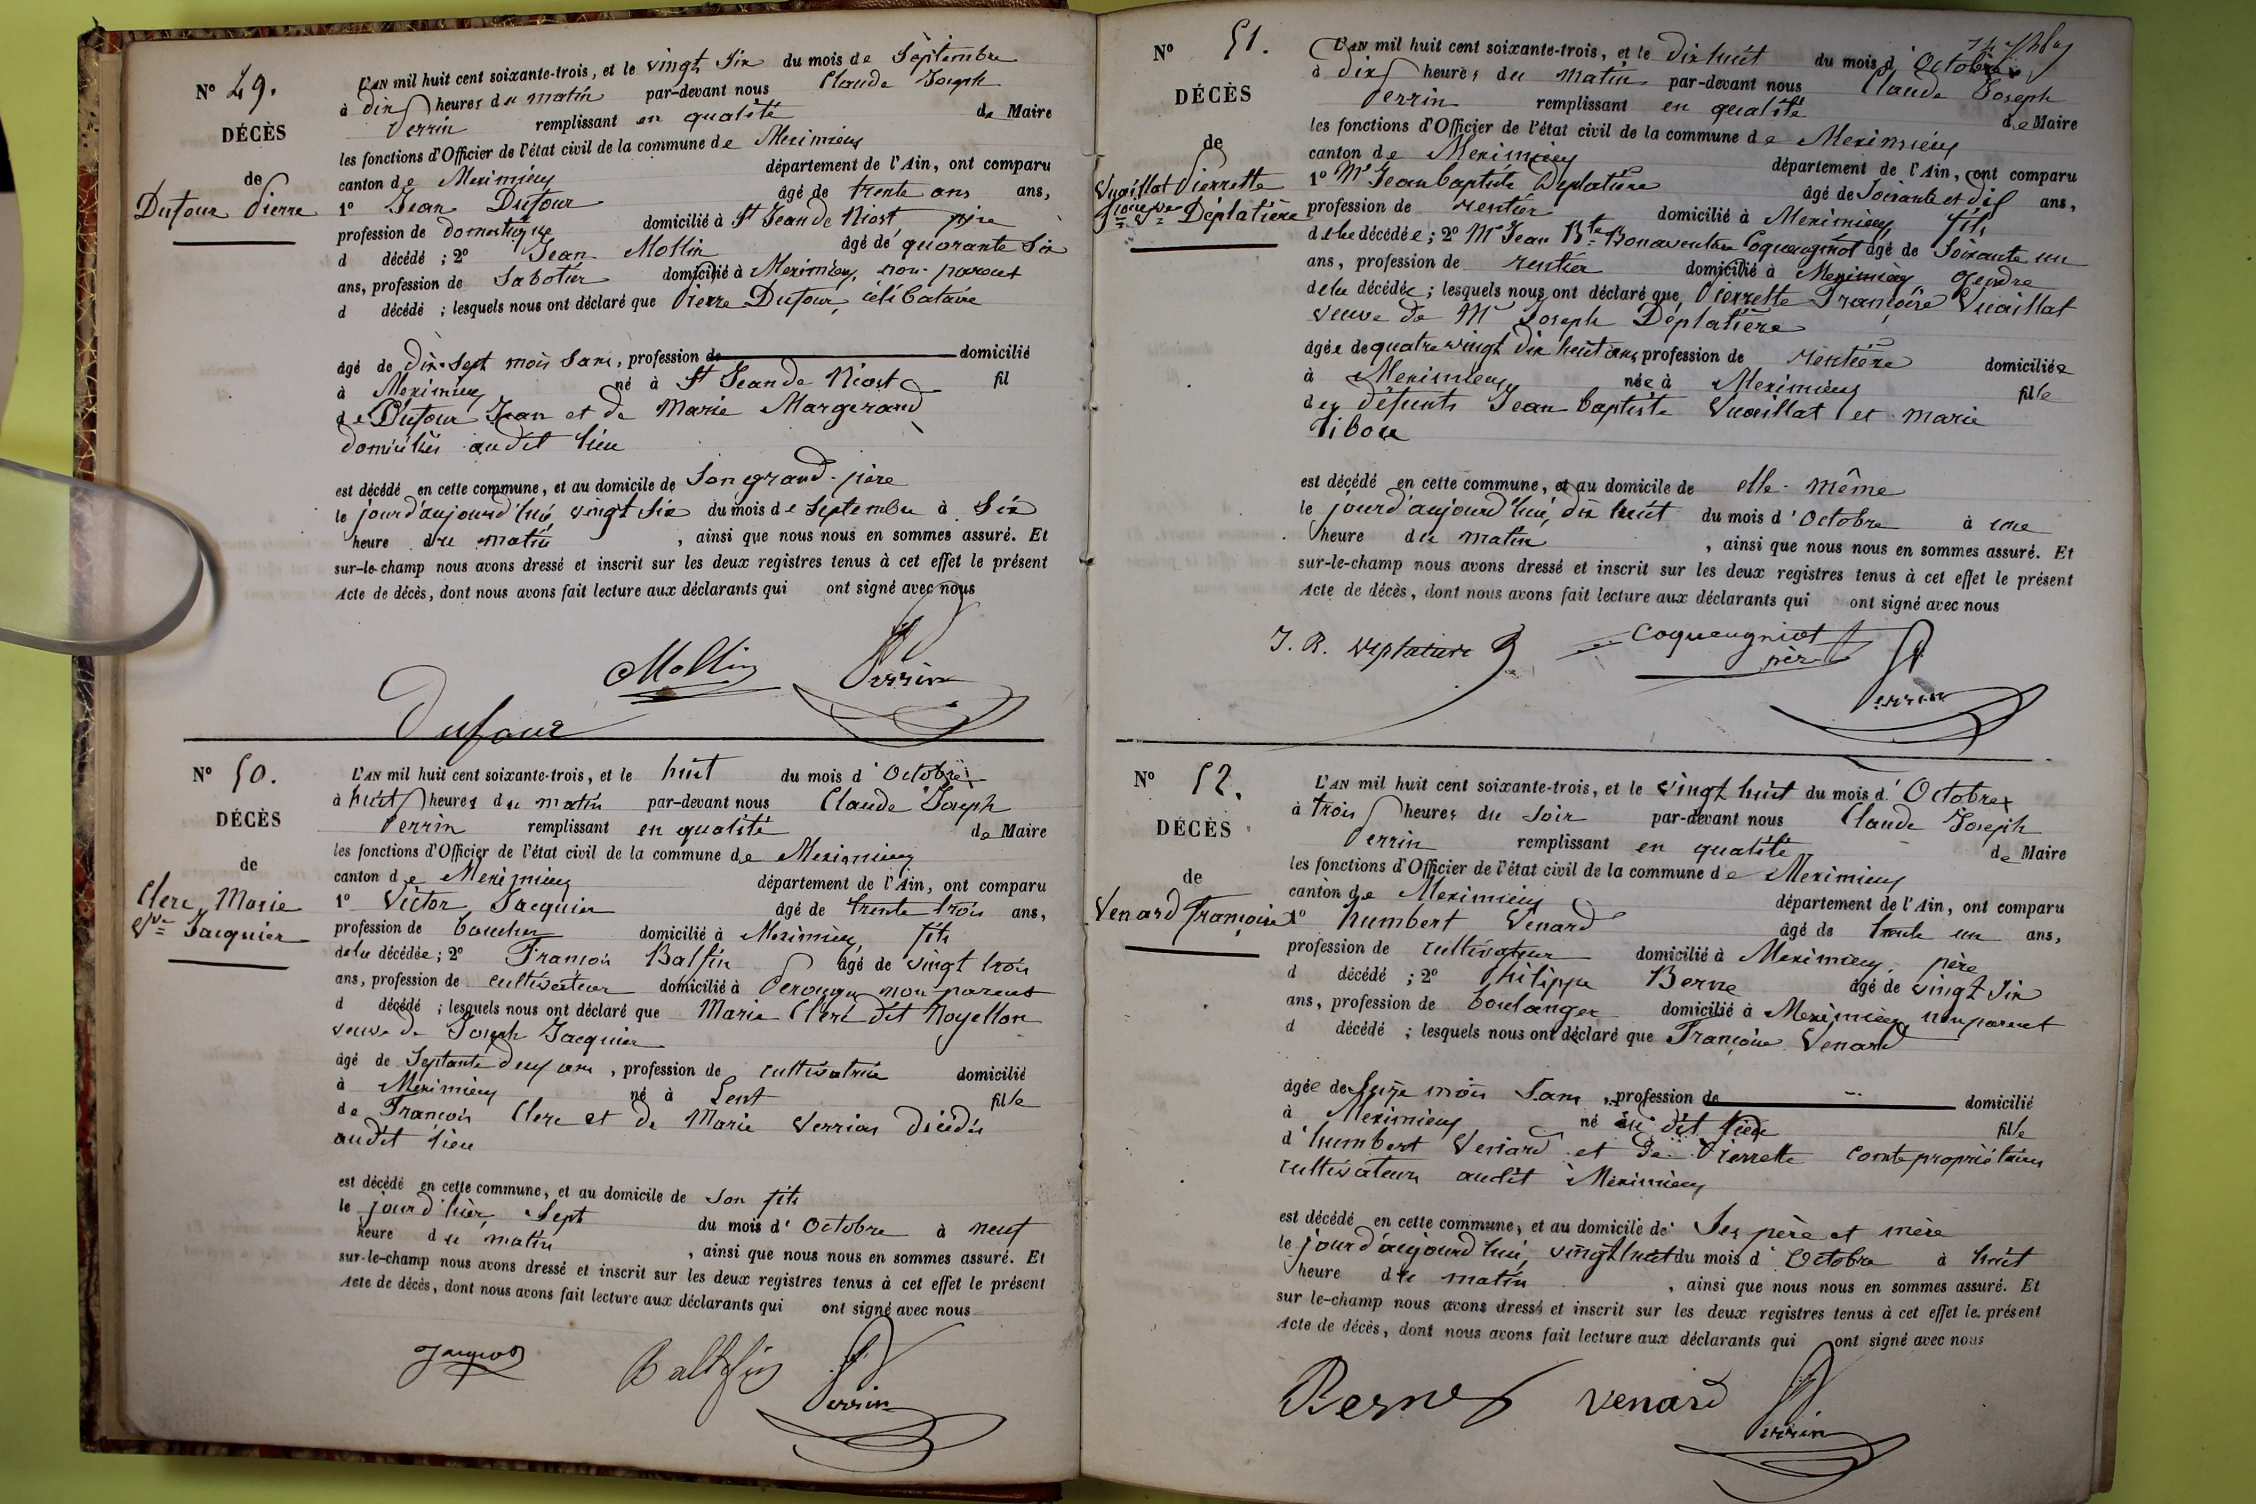 N° 49.
DÉCÈS
de
Dufour Pierre
L'AN mil huit cent soixante-trois, et le vingt six du mois de Septembre
à dix heures du matin par-devant nous Claude Joseph
Perrin remplissant en qualité de Maire
les fonctions d'Officier de l'état civil de la commune de Meximieux
canton de Meximieux département de l'Ain, ont comparu
1° Jean Dufour âgé de trente ans ans,
profession de domestique domicilié à St Jean de Niost, père
d décédé ; 2° Jean Mollin âgé de quarante six
ans, profession de Sabotier domicilié à Meximieux, non parent
d décédé ; lesquels nous ont déclaré que Pierre Dufour, célibataire
âgé de dix-sept mois sans, profession de domicilié
à Meximieux né à St Jean de Niost fil
de Dufour Jean et de Marie Margerand
domiciliés audit lieu
est décédé en cette commune, et au domicile de Son grand-père
le jourd'aujourd'hui, vingt six du mois de Septembre à Six
heure du matin , ainsi que nous nous en sommes assuré. Et
sur-le-champ nous avons dressé et inscrit sur les deux registres tenus à cet effet le présent
Acte de décès, dont nous avons fait lecture aux déclarants qui ont signé avec nous
Mollin Perrin
Dufour
N° 50.
DÉCÈS
de
Clerc Marie
Vve Jacquier
L'AN mil huit cent soixante-trois, et le huit du mois d'Octobre
à huit heures du matin par-devant nous Claude Joseph
Perrin remplissant en qualité de Maire
les fonctions d'Officier de l'état civil de la commune de Meximieux
canton de Meximieux département de l'Ain, ont comparu
1° Victor Jacquier âgé de trente trois ans,
profession de boucher domicilié à Meximieux, fils
de la décédée ; 2° François Balfin âgé de vingt trois
ans, profession de cultivateur domicilié à Perouges non parent
d décédé ; lesquels nous ont déclaré que Marie Clerc dit Noyellon
veuve de Joseph Jacquier
âgé de Septante deux ans, profession de cultivatrice domicilié
à Meximieux né à Lent fille
de François Clerc et de Marie Verrian décédés
audit lieu
est décédé en cette commune, et au domicile de son fils
le jour d'hier, Sept du mois d'Octobre à neuf
heure du matin , ainsi que nous nous en sommes assuré. Et
sur-le-champ nous avons dressé et inscrit sur les deux registres tenus à cet effet le présent
Acte de décès, dont nous avons fait lecture aux déclarants qui ont signé avec nous
Perrin
N° 51.
DÉCÈS
de
Vuaillat Pierrette
Fçoise Vve Déplatière
L'AN mil huit cent soixante-trois, et le dix huit du mois d'Octobre
à dix heures du matin par-devant nous Claude Joseph
Perrin remplissant en qualité de Maire
les fonctions d'Officier de l'état civil de la commune de Meximieux
canton de Meximieux département de l'Ain, ont comparu
1° Mr Jean baptiste Déplatière âgé de Soixante et dix ans,
profession de rentier domicilié à Meximieux, fils
de la décédée ; 2° Mr Jean Bte Bonaventure Coqueugniot âgé de Soixante un
ans, profession de rentier domicilié à Meximieux, gendre
de la décédée ; lesquels nous ont déclaré que Pierrette Françoise Vuaillat
veuve de Mr Joseph Déplatière
âgée de quatre vingt dix huit ans profession de rentière domiciliée
à Meximieux née à Meximieux fille
des défunts Jean baptiste Vuaillat et marie
Tiboue
est décédé en cette commune, et au domicile de elle-même
le jourd'aujourd'hui, dix huit du mois d'Octobre à une
heure du matin , ainsi que nous nous en sommes assuré. Et
sur-le-champ nous avons dressé et inscrit sur les deux registres tenus à cet effet le présent
Acte de décès, dont nous avons fait lecture aux déclarants qui ont signé avec nous
Coqueugniot
père
Perrin
N° 52.
DÉCÈS
de
Venard Françoise
L'AN mil huit cent soixante-trois, et le vingt huit du mois d'Octobre
à trois heures du soir par-devant nous Claude Joseph
Perrin remplissant en qualité de Maire
les fonctions d'Officier de l'état civil de la commune de Meximieux
canton de Meximieux département de l'Ain, ont comparu
1° humbert Venard âgé de trente un ans,
profession de cultivateur domicilié à Meximieux, père
d décédé ; 2° Philippe Berne âgé de vingt six
ans, profession de boulanger domicilié à Meximieux, non parent
d décédé ; lesquels nous ont déclaré que Françoise Venard
âgée de Seize mois Sans, profession de domicilié
à Meximieux né au dit lieu fille
d'humbert Venard et de Pierrette Comte propriétaires
cultivateurs audit à Meximieux
est décédé en cette commune, et au domicile de Ses père et mère
le jourd'aujourd'hui, vingt huit du mois d'Octobre à huit
heure du matin , ainsi que nous nous en sommes assuré. Et
sur le-champ nous avons dressé et inscrit sur les deux registres tenus à cet effet le présent
Acte de décès, dont nous avons fait lecture aux déclarants qui ont signé avec nous
Berne Venard Perrin